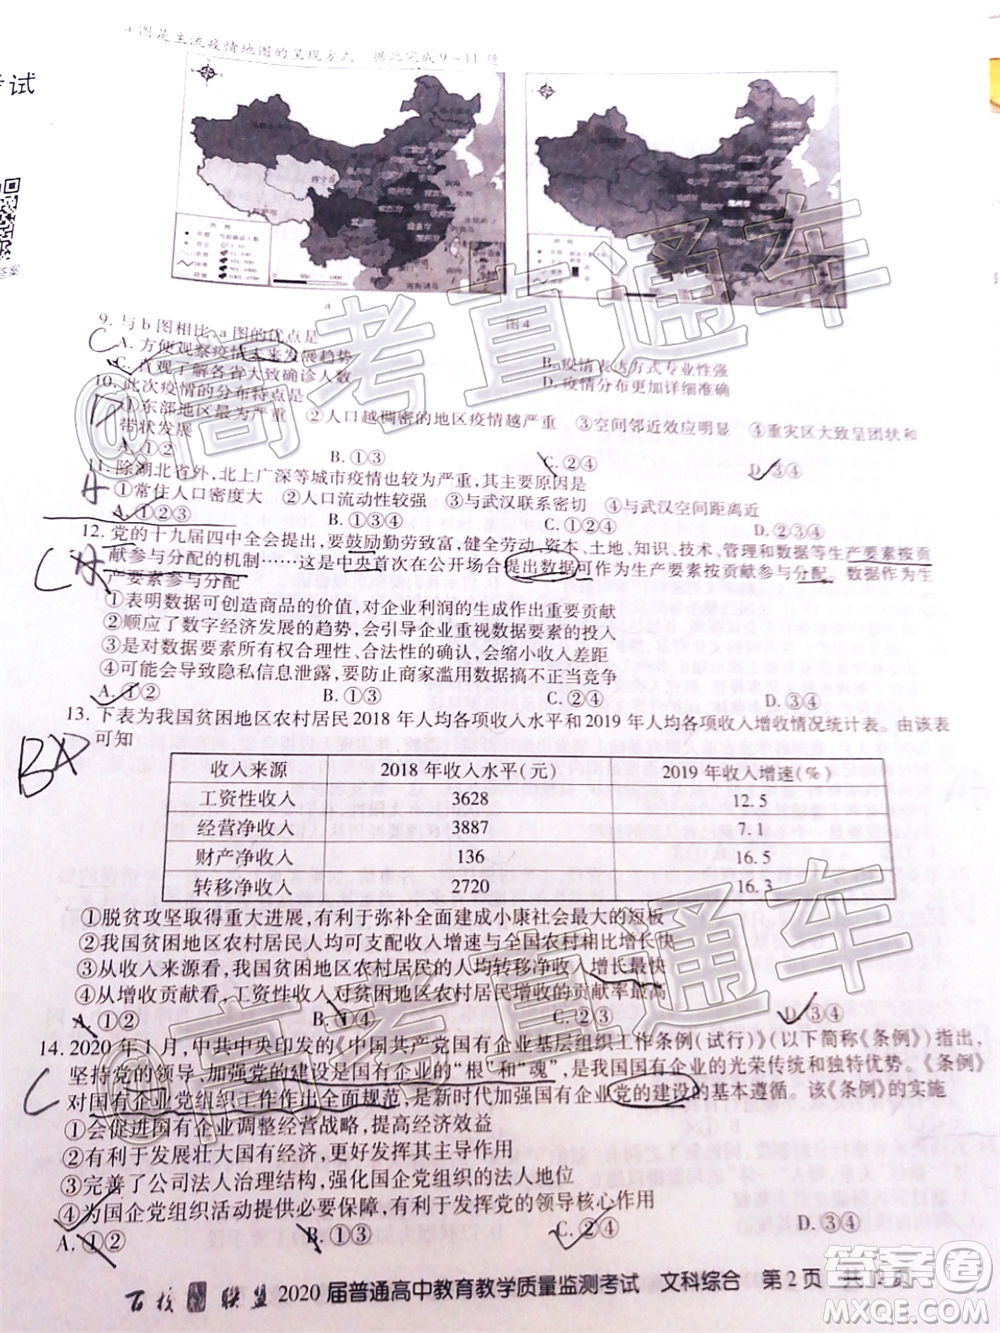 a图是主流疫情地图的呈现方式 据此完成9-11题
考试
答案
图4
9. 与b图相比,a图的优点是
A. 方便观察疫情未来发展趋势
B. 疫情表达方式专业性强
C. 直观了解各省大致确诊人数
D. 疫情分布更加详细准确
10. 此次疫情的分布特点是
①东部地区最为严重 ②人口越稠密的地区疫情越严重 ③空间邻近效应明显 ④重灾区大致呈团状和
带状发展
A. ①② B. ①③ C. ②④ D. ③④
11. 除湖北省外,北上广深等城市疫情也较为严重,其主要原因是
①常住人口密度大 ②人口流动性较强 ③与武汉联系密切 ④与武汉空间距离近
A. ①②③ B. ①③④ C. ①②④ D. ②③④
12. 党的十九届四中全会提出:要鼓励勤劳致富,健全劳动、资本、土地、知识、技术、管理和数据等生产要素按贡
献参与分配的机制……这是中央首次在公开场合提出数据可作为生产要素按贡献参与分配。数据作为生
产要素参与分配
①表明数据可创造商品的价值,对企业利润的生成作出重要贡献
②顺应了数字经济发展的趋势,会引导企业重视数据要素的投入
③是对数据要素所有权合理性、合法性的确认,会缩小收入差距
④可能会导致隐私信息泄露,要防止商家滥用数据搞不正当竞争
A. ①② B. ①③ C. ②④ D. ③④
13. 下表为我国贫困地区农村居民 2018 年人均各项收入水平和 2019 年人均各项收入增收情况统计表。由该表
可知
收入来源 2018 年收入水平(元) 2019 年收入增速(%)
工资性收入 3628 12.5
经营净收入 3887 7.1
财产净收入 136 16.5
转移净收入 2720 16.3
①脱贫攻坚取得重大进展,有利于弥补全面建成小康社会最大的短板
②我国贫困地区农村居民人均可支配收入增速与全国农村相比增长快
③从收入来源看,我国贫困地区农村居民的人均转移净收入增长最快
④从增收贡献看,工资性收入对贫困地区农村居民增收的贡献率最高
A. ①② B. ①④ C. ②③ D. ③④
14. 2020 年 1 月,中共中央印发的《中国共产党国有企业基层组织工作条例(试行)》(以下简称《条例》)指出,
坚持党的领导、加强党的建设是国有企业的“根”和“魂”,是我国国有企业的光荣传统和独特优势。《条例》
对国有企业党组织工作作出全面规范,是新时代加强国有企业党的建设的基本遵循。该《条例》的实施
①会促进国有企业调整经营战略,提高经济效益
②有利于发展壮大国有经济,更好发挥其主导作用
③完善了公司法人治理结构,强化国企企业的法人地位
④为国企党组织活动提供必要保障,有利于发挥党的领导核心作用
A. ①② B. ①③ C. ②④ D. ③④
百校联盟 2020 届普通高中教育教学质量监测考试 文科综合 第 2 页 共 12 页
@高考直通车
@高考直通车
答案圈
MXQE.COM